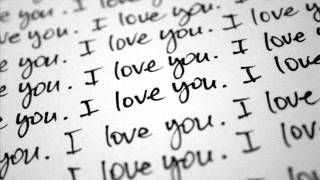 you. I love you.
you. I love you. I love
love you. I love you. I love you.
you. I love you. I love
you. I love you. I love
I love you. I love
love you.